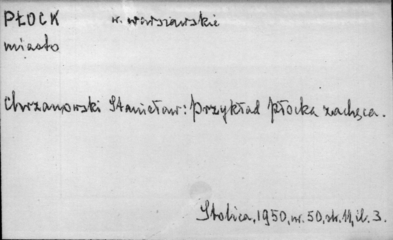 PŁOCK w. warszawskie
miasto
Chrzanowski Stanisław: Przykład Płocka zachęca.
Stolica, 1950, nr. 50, str. 11, il. 3.